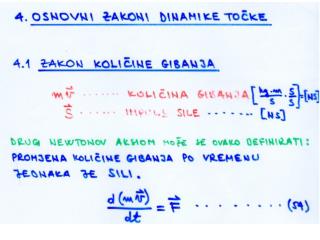 4. OSNOVNI ZAKONI DINAMIKE TOČKE
4.1 ZAKON KOLIČINE GIBANJA
m v⃗ ...... KOLIČINA GIBANJA [kg·m/s · s/s] = [NS]
S⃗ ...... IMPULS SILE ...... [NS]
DRUGI NEWTONOV AKSIOM MOŽE SE OVAKO DEFINIRATI:
PROMJENA KOLIČINE GIBANJA PO VREMENU
JEDNAKA JE SILI.
d(m v⃗)/dt = F⃗ ........ (59)